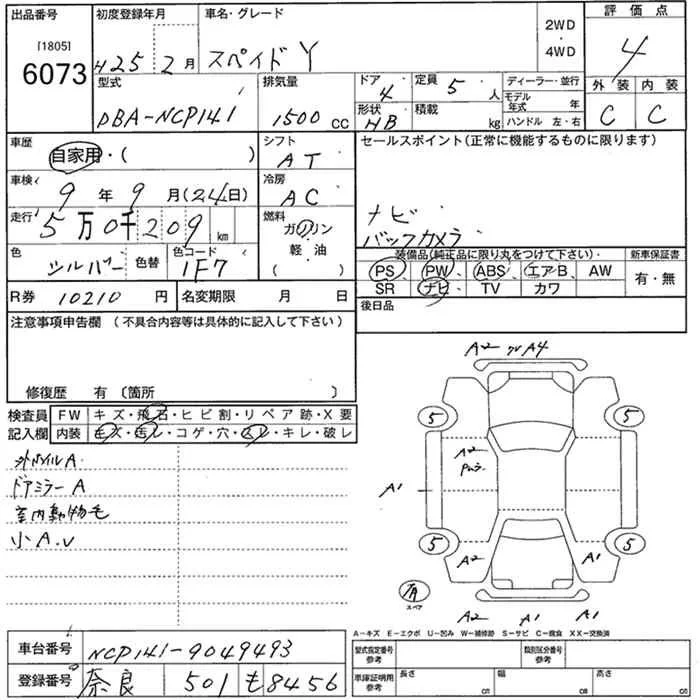 出品番号 初度登録年月 車名・グレード 2WD・4WD 評価点
[1805] 6073 H25 2月 スペイド Y 4
型式 排気量 ドア 4 定員 5人 ディーラー・並行 外装 内装
DBA-NCP141 1500cc 形状 HB 積載 kg モデル年式 年 ハンドル 左・右 C C
車歴 自家用・( ) シフト AT セールスポイント(正常に機能するものに限ります)
車検 9年9月(24日) 冷房 AC
走行 5万0千209km 燃料 ガソリン 軽・油 ( ) ナビ
バックカメラ
色 シルバー 色替 色コード 1F7 装備品(純正品に限り丸をつけて下さい) 新車保証書
PS PW ABS エアB AW 有・無
R券 10210円 名変期限 月 日 SR ナビ TV カワ
注意事項申告欄 (不具合内容等は具体的に記入して下さい) 後日品
修復歴 有 〔箇所 〕
検査員 FW キズ・飛石・ヒビ割・リペア跡・X要
記入欄 内装 キズ・汚レ・コゲ・穴・スレ・キレ・破レ
外ホイルA
ドアミラーA
室内動物毛
小A.U
A2 A4
5 5
A2
A1
5 5
A2 A1
有
スペア
A2 A1 A2
A-キズ E-エクボ U-凹み W-補修跡 S-サビ C-腐食 XX-交換済
車台番号 NCP141-9049493 型式指定番号 参考 類別区分番号 参考
登録番号 奈良 501 も8456 車庫証明用 参考 長さ cm 幅 cm 高さ cm